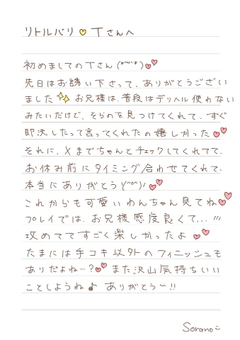 リトルバリ♡Tさんへ
初めましてのTさん(*˘︶˘*)💕
先日はお誘い下さって、ありがとうござい
ました✨お兄様は、普段はデリヘル使わない
みたいだけど、そらのを見つけてくれて、すぐ
即決したって言ってくれたの嬉しかった♡
それに、Xまでちゃんとチェックしてくれてて、
お休み前にタイミング合わせてくれて、
本当にありがとう(*˘︶˘*)💕
これからも可愛いわんちゃん見てね♡
プレイでは、お兄様感度良くて...!!!
攻めててすごく楽しかったよ💕
たまには手コキ以外のフィニッシュも
ありだよね〜?💕また沢山気持ちいい
ことしようね♪ありがとう〜!!
Sorano